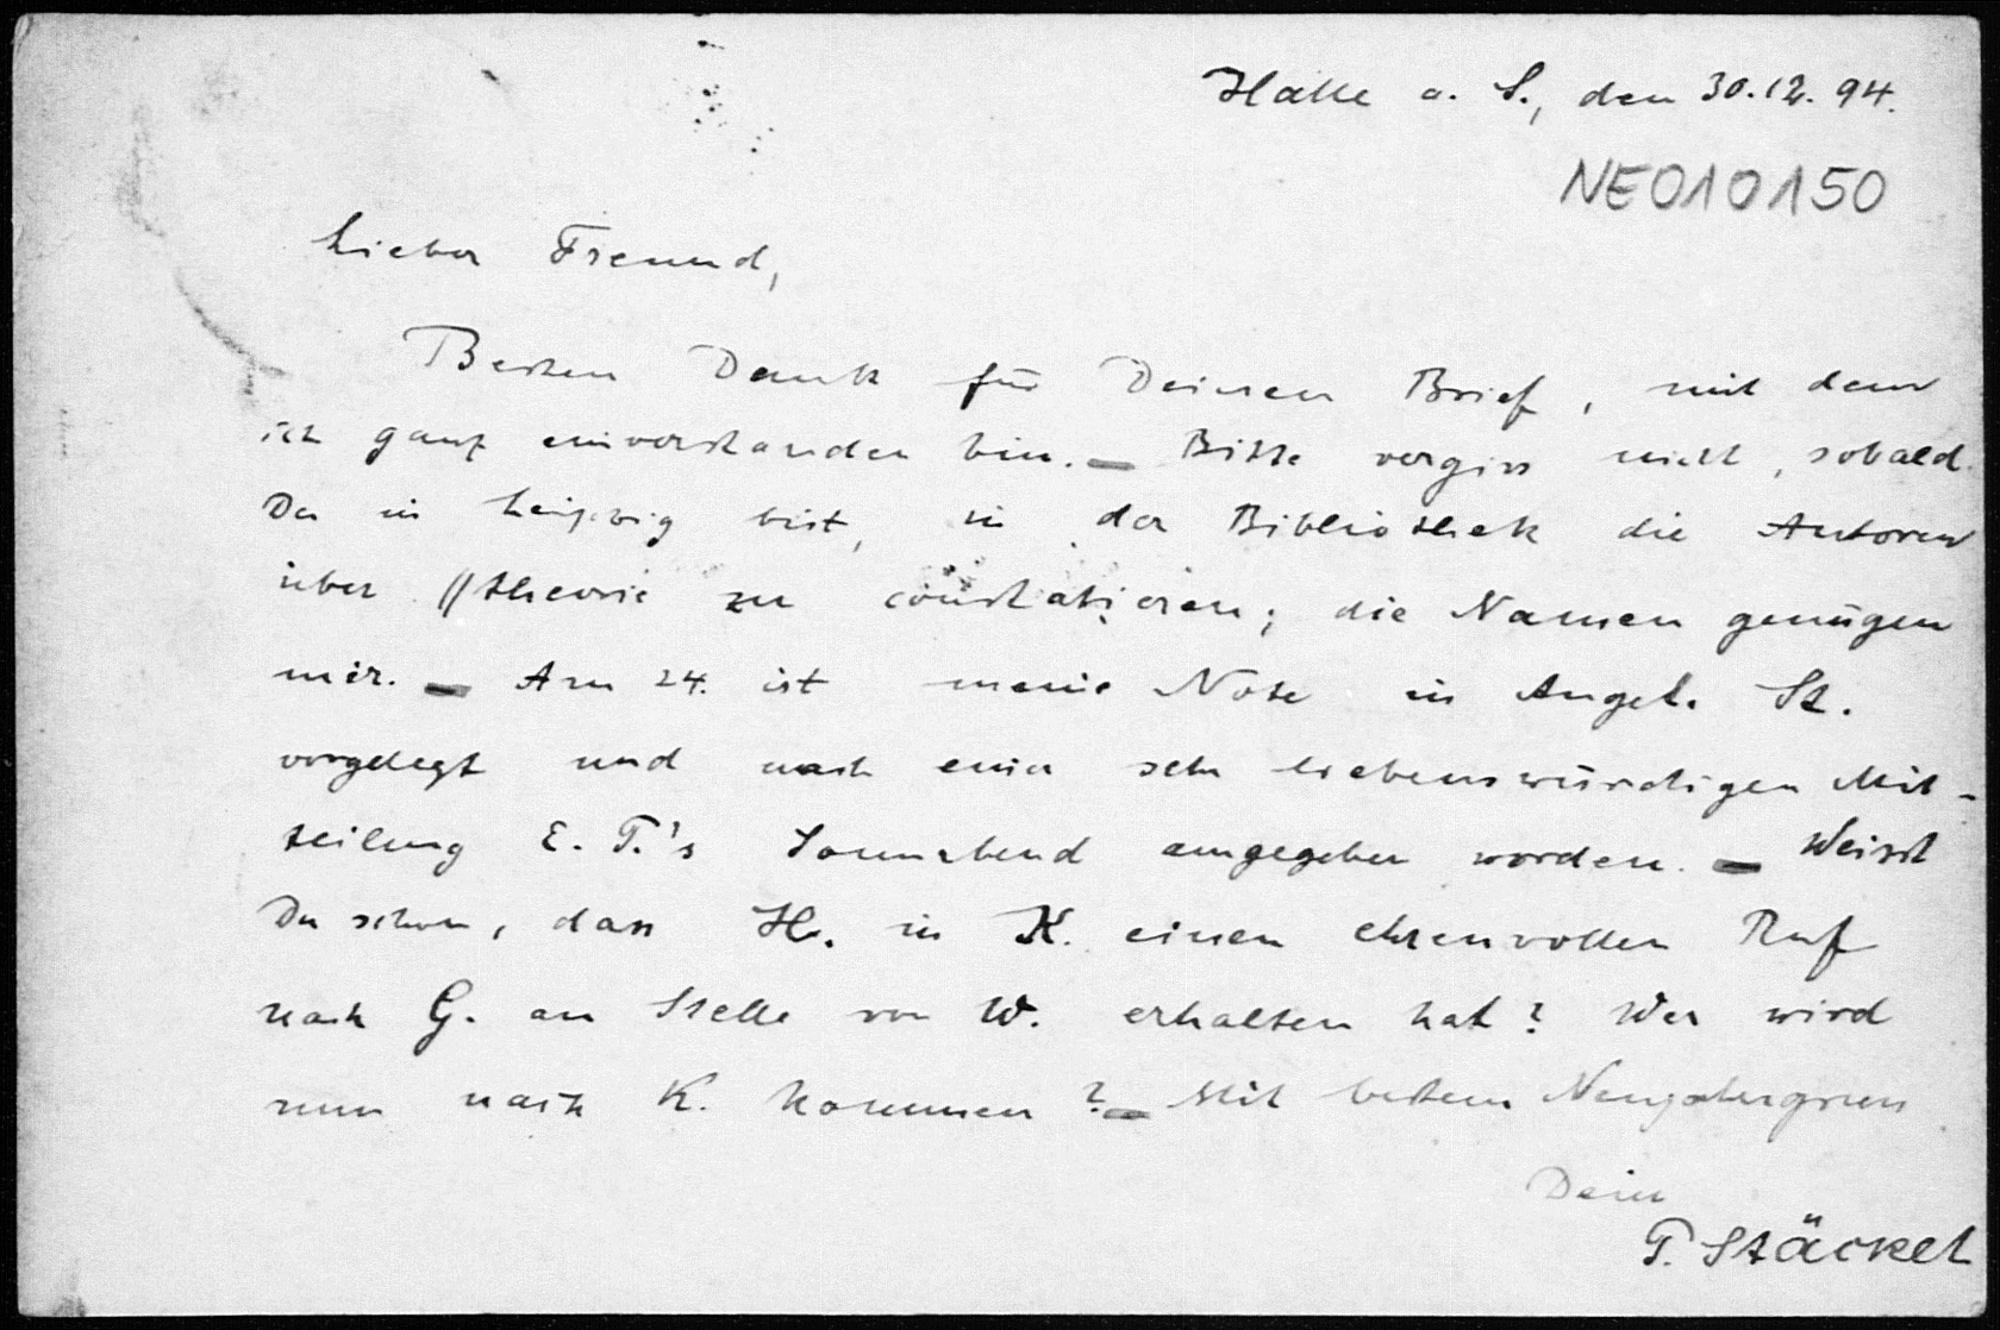 Halle a. S., den 30.12.94.
NE010150
Lieber Freund,
Besten Dank für Deinen Brief, mit dem
ich ganz einverstanden bin. – Bitte vergiss nicht, sobald
Du in Leipzig bist, in der Bibliothek die Autoren
über //theorie zu constatieren; die Namen genügen
mir. – Am 24. ist meine Note in Angel. St.
vorgelegt und nach einer sehr liebenswürdigen Mit-
teilung E. P.'s Sonnabend angegeben worden. – Weisst
Du schon, dass H. in K. einen ehrenvollen Ruf
nach G. an Stelle von W. erhalten hat? Wer wird
nun nach K. kommen? – Mit bestem Neujahrsgruss
Dein
P. Stäckel